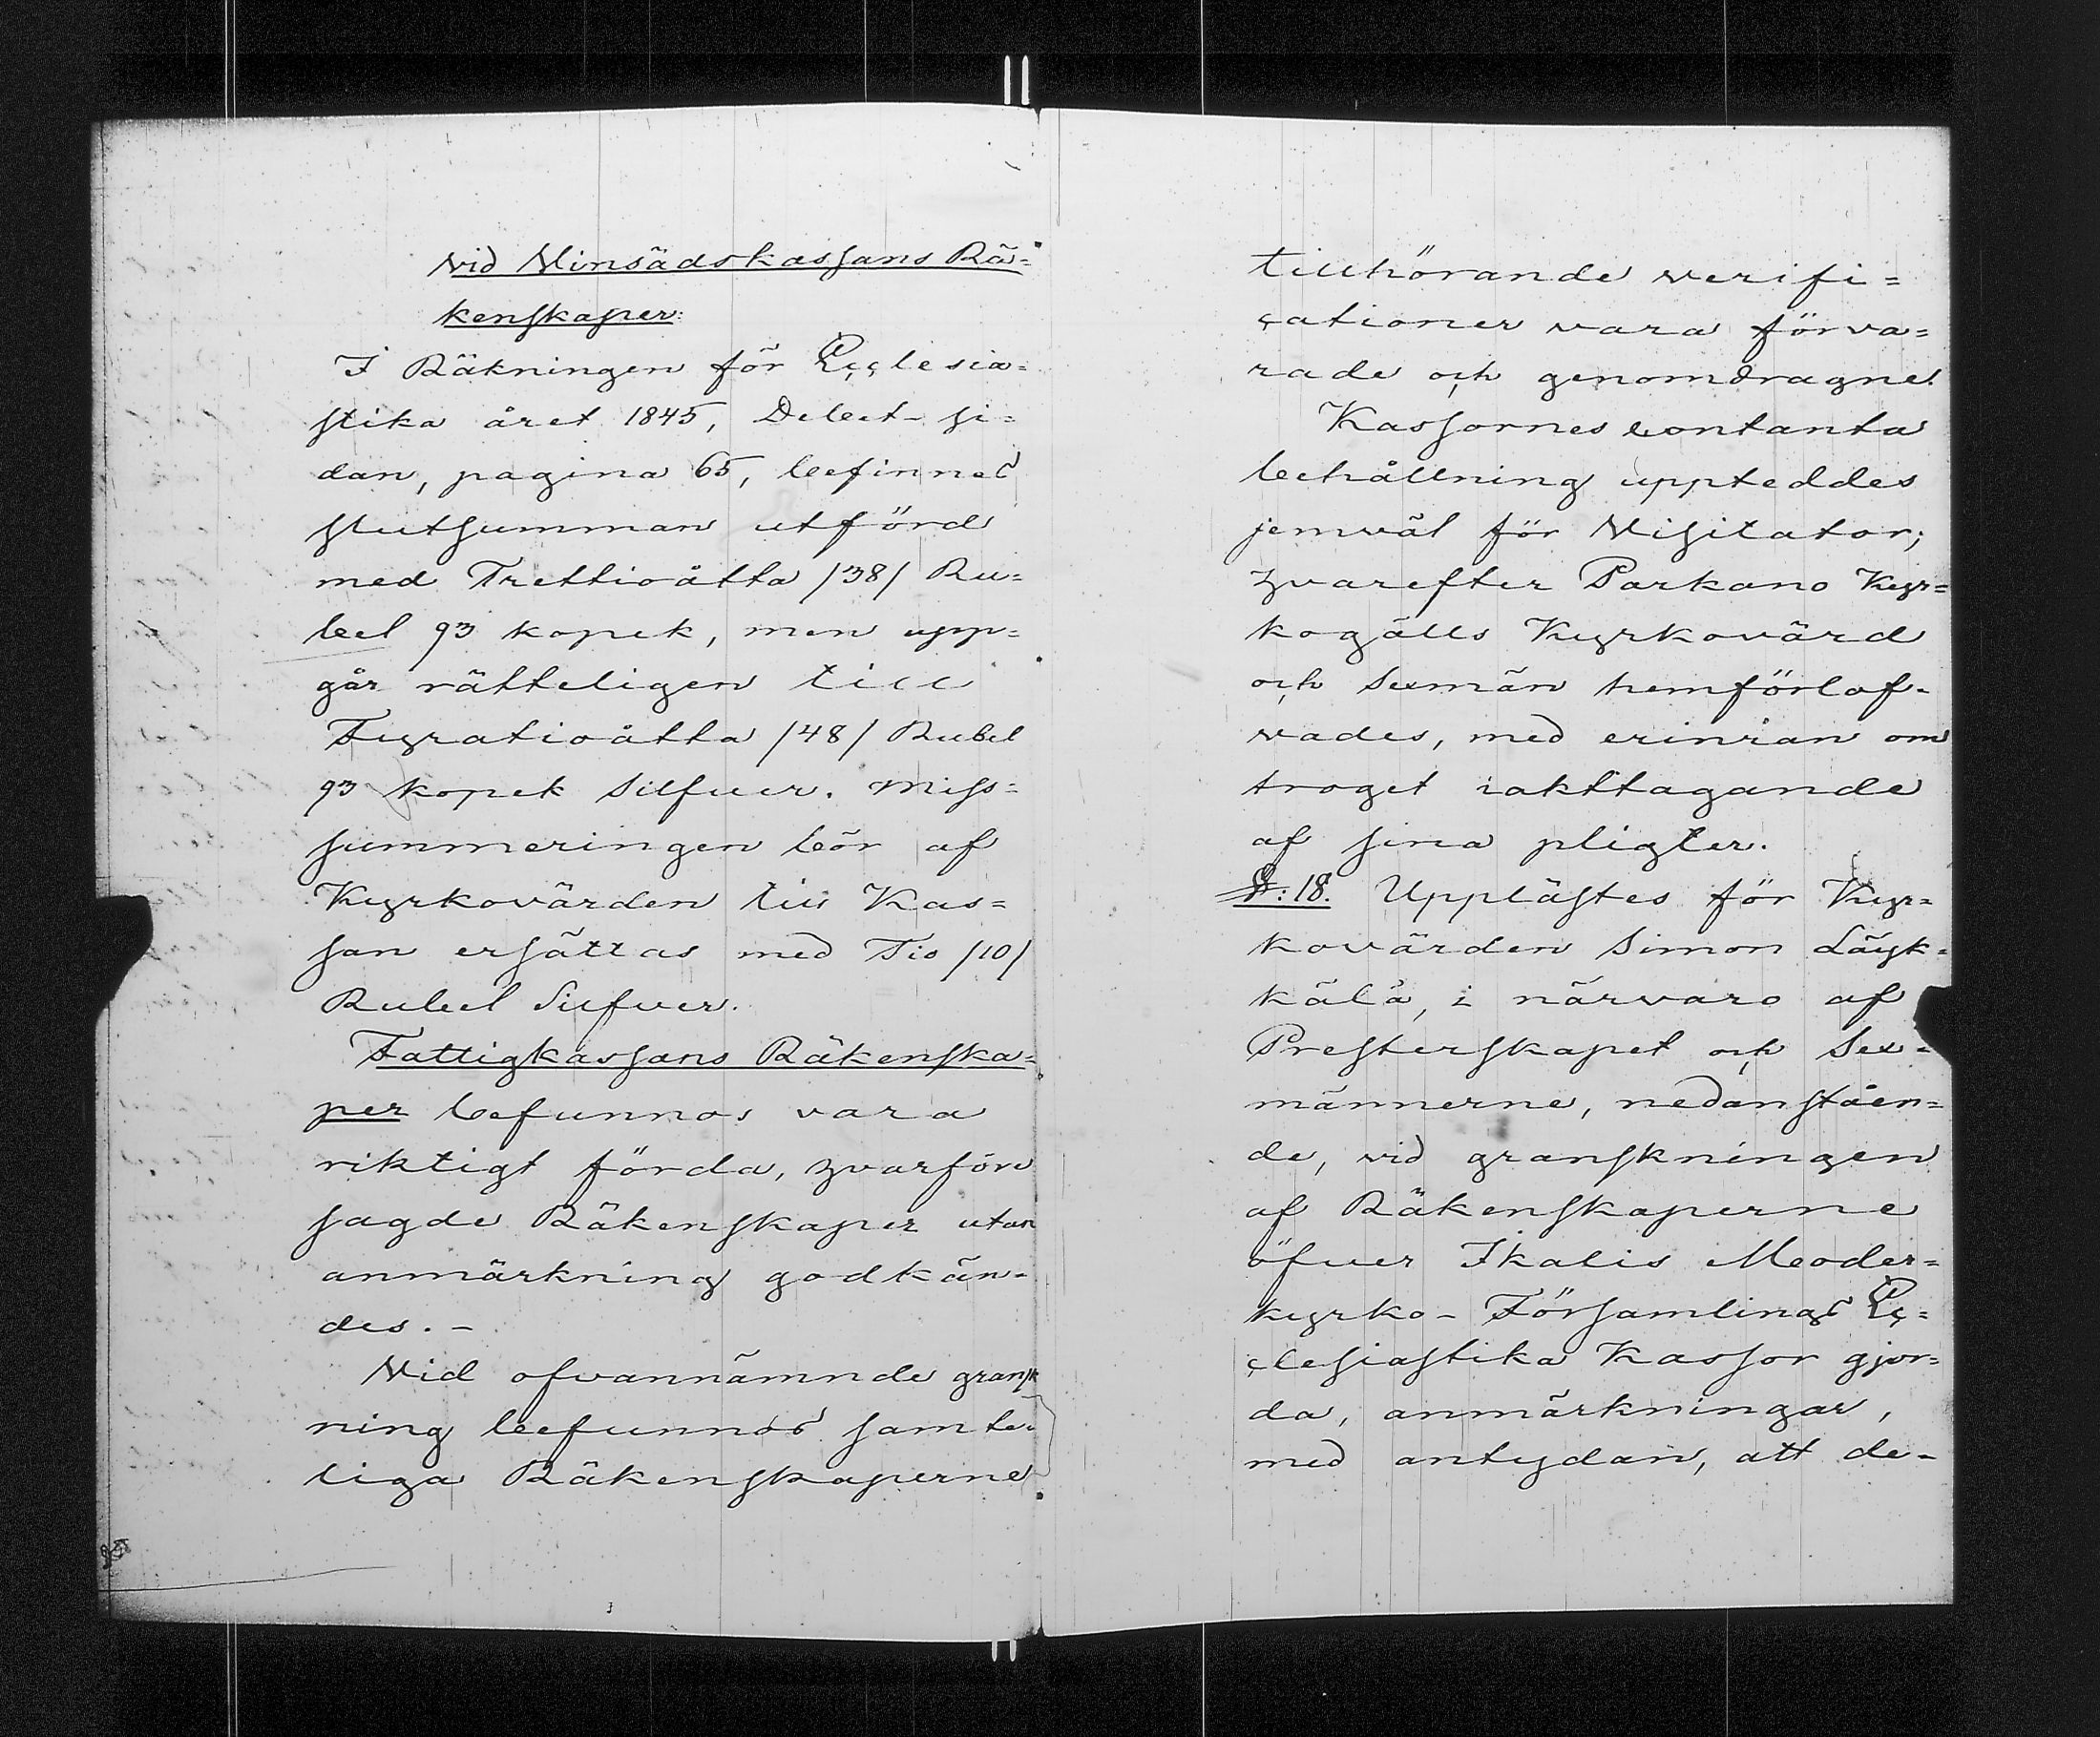 vid Vinsädskassans Rä=
kenskaper:
I Räkningen för Ecclesia=
stika året 1845, Debet-si=
dan, pagina 65, befinnes
slutsumman utförd
med Trettioåtta /38/ Ru=
bel 93 kopek, men upp=
går rätteligen till
Fyratioåtta /48/ Rubel
93 kopek Silfver. Miss=
summeringen bör af
Kyrkovärden till Kas=
san ersättas med Tio /10/
Rubel Silfver.
Fattigkassans Räkenska=
per befunnos vara
riktigt förda, hvarföre
sagde Räkenskaper utan
anmärkning godkän=
des. -
Vid ofvannämnde gransk
ning befunnos samte=
liga Räkenskaperne
tillhörande verifi=
cationer vara förva=
rade och genomdragne.
Kassornes contanta
behållning uppteddes
jemväl för Visitator;
hvarefter Parkano Kyr=
kogälls Kyrkovärd
och Sexmän hemförlof=
vades, med erinran om
troget iakttagande
af sina pligter.
§: 18. Upplästes för Kyr=
kovärden Simon Läyk=
kälä, i närvaro af
Presterskapet och Sex=
männerne, nedanståen=
de, vid granskningen
af Räkenskaperne
öfver Ikalis Moder=
kyrko-Församlings Ec=
clesiastika Kassor gjor=
da, anmärkningar,
med antydan, att de-